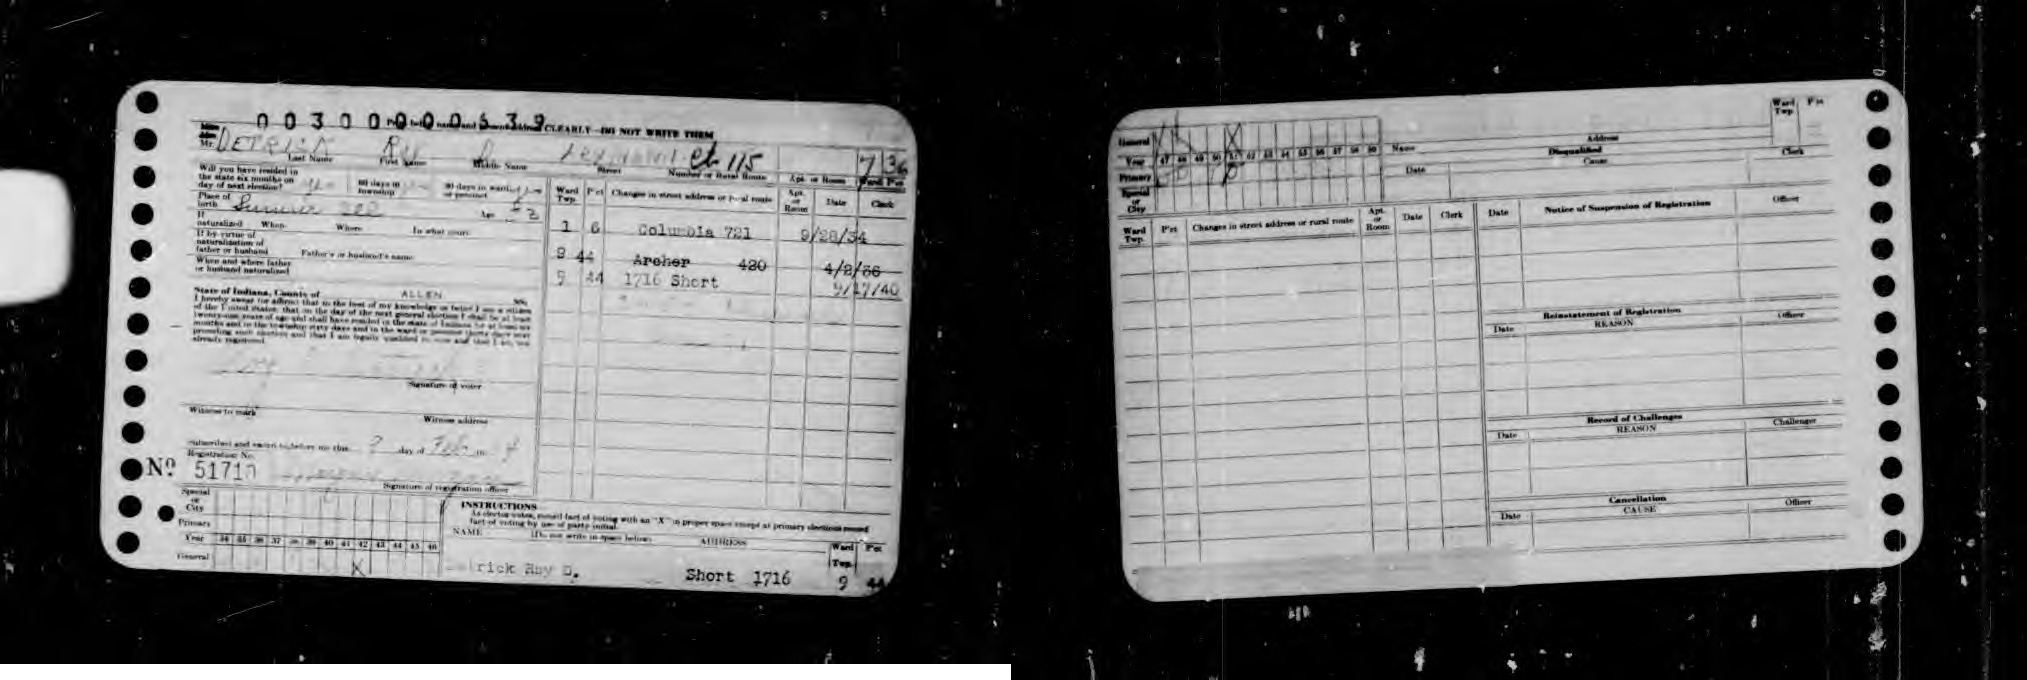 00300000639
Print both name and present address CLEARLY—DO NOT WRITE THEM
Mr. DETRICK Ray D 115 7 36
Last Name First Name Middle Name Street Number or Rural Route Apt. or Room Ward Pct
Will you have resided in
the state six months on
day of next election? 60 days in township 30 days in ward or precinct
Place of birth Age 52
If naturalized When Where In what court
If by virtue of
naturalization of
father or husband Father's or husband's name
When and where father
or husband naturalized
State of Indiana, County of ALLEN SS:
I hereby swear (or affirm) that to the best of my knowledge or belief I am a citizen
of the United States; that on the day of the next general election I shall be at least
twenty-one years of age and shall have resided in the state of Indiana for at least six
months and in the township sixty days and in the ward or precinct thirty days next
preceding such election and that I am legally qualified to vote and that I am not
already registered.
Signature of voter
Witness to mark Witness address
Subscribed and sworn to before me this day of Feb
Registration No.
Nº 51710
Signature of registration officer
Special or City
Primary
Year 34 35 36 37 38 39 40 41 42 43 44 45 46
General X
Ward Twp. Pct Changes in street address or rural route Apt. or Room Date Clerk
1 6 Columbia 721 9/28/34
9 44 Archer 420 4/2/36
9 44 1716 Short 9/17/40
INSTRUCTIONS
As elector votes, record fact of voting with an "X" in proper space except at primary elections record
fact of voting by use of party initial.
NAME (Do not write in space below) ADDRESS Ward Twp. Pct
rick Ray D. Short 1716 9 44
General X X
Year 47 48 49 50 51 52 53 54 55 56 57 58 59
Primary
Special or City
Ward Twp. Pct
Name Address
Disqualified
Date Cause Clerk
Ward Twp. Pct Changes in street address or rural route Apt. or Room Date Clerk
Date Notice of Suspension of Registration Officer
Reinstatement of Registration
Date REASON Officer
Record of Challenges
Date REASON Challenger
Cancellation
Date CAUSE Officer